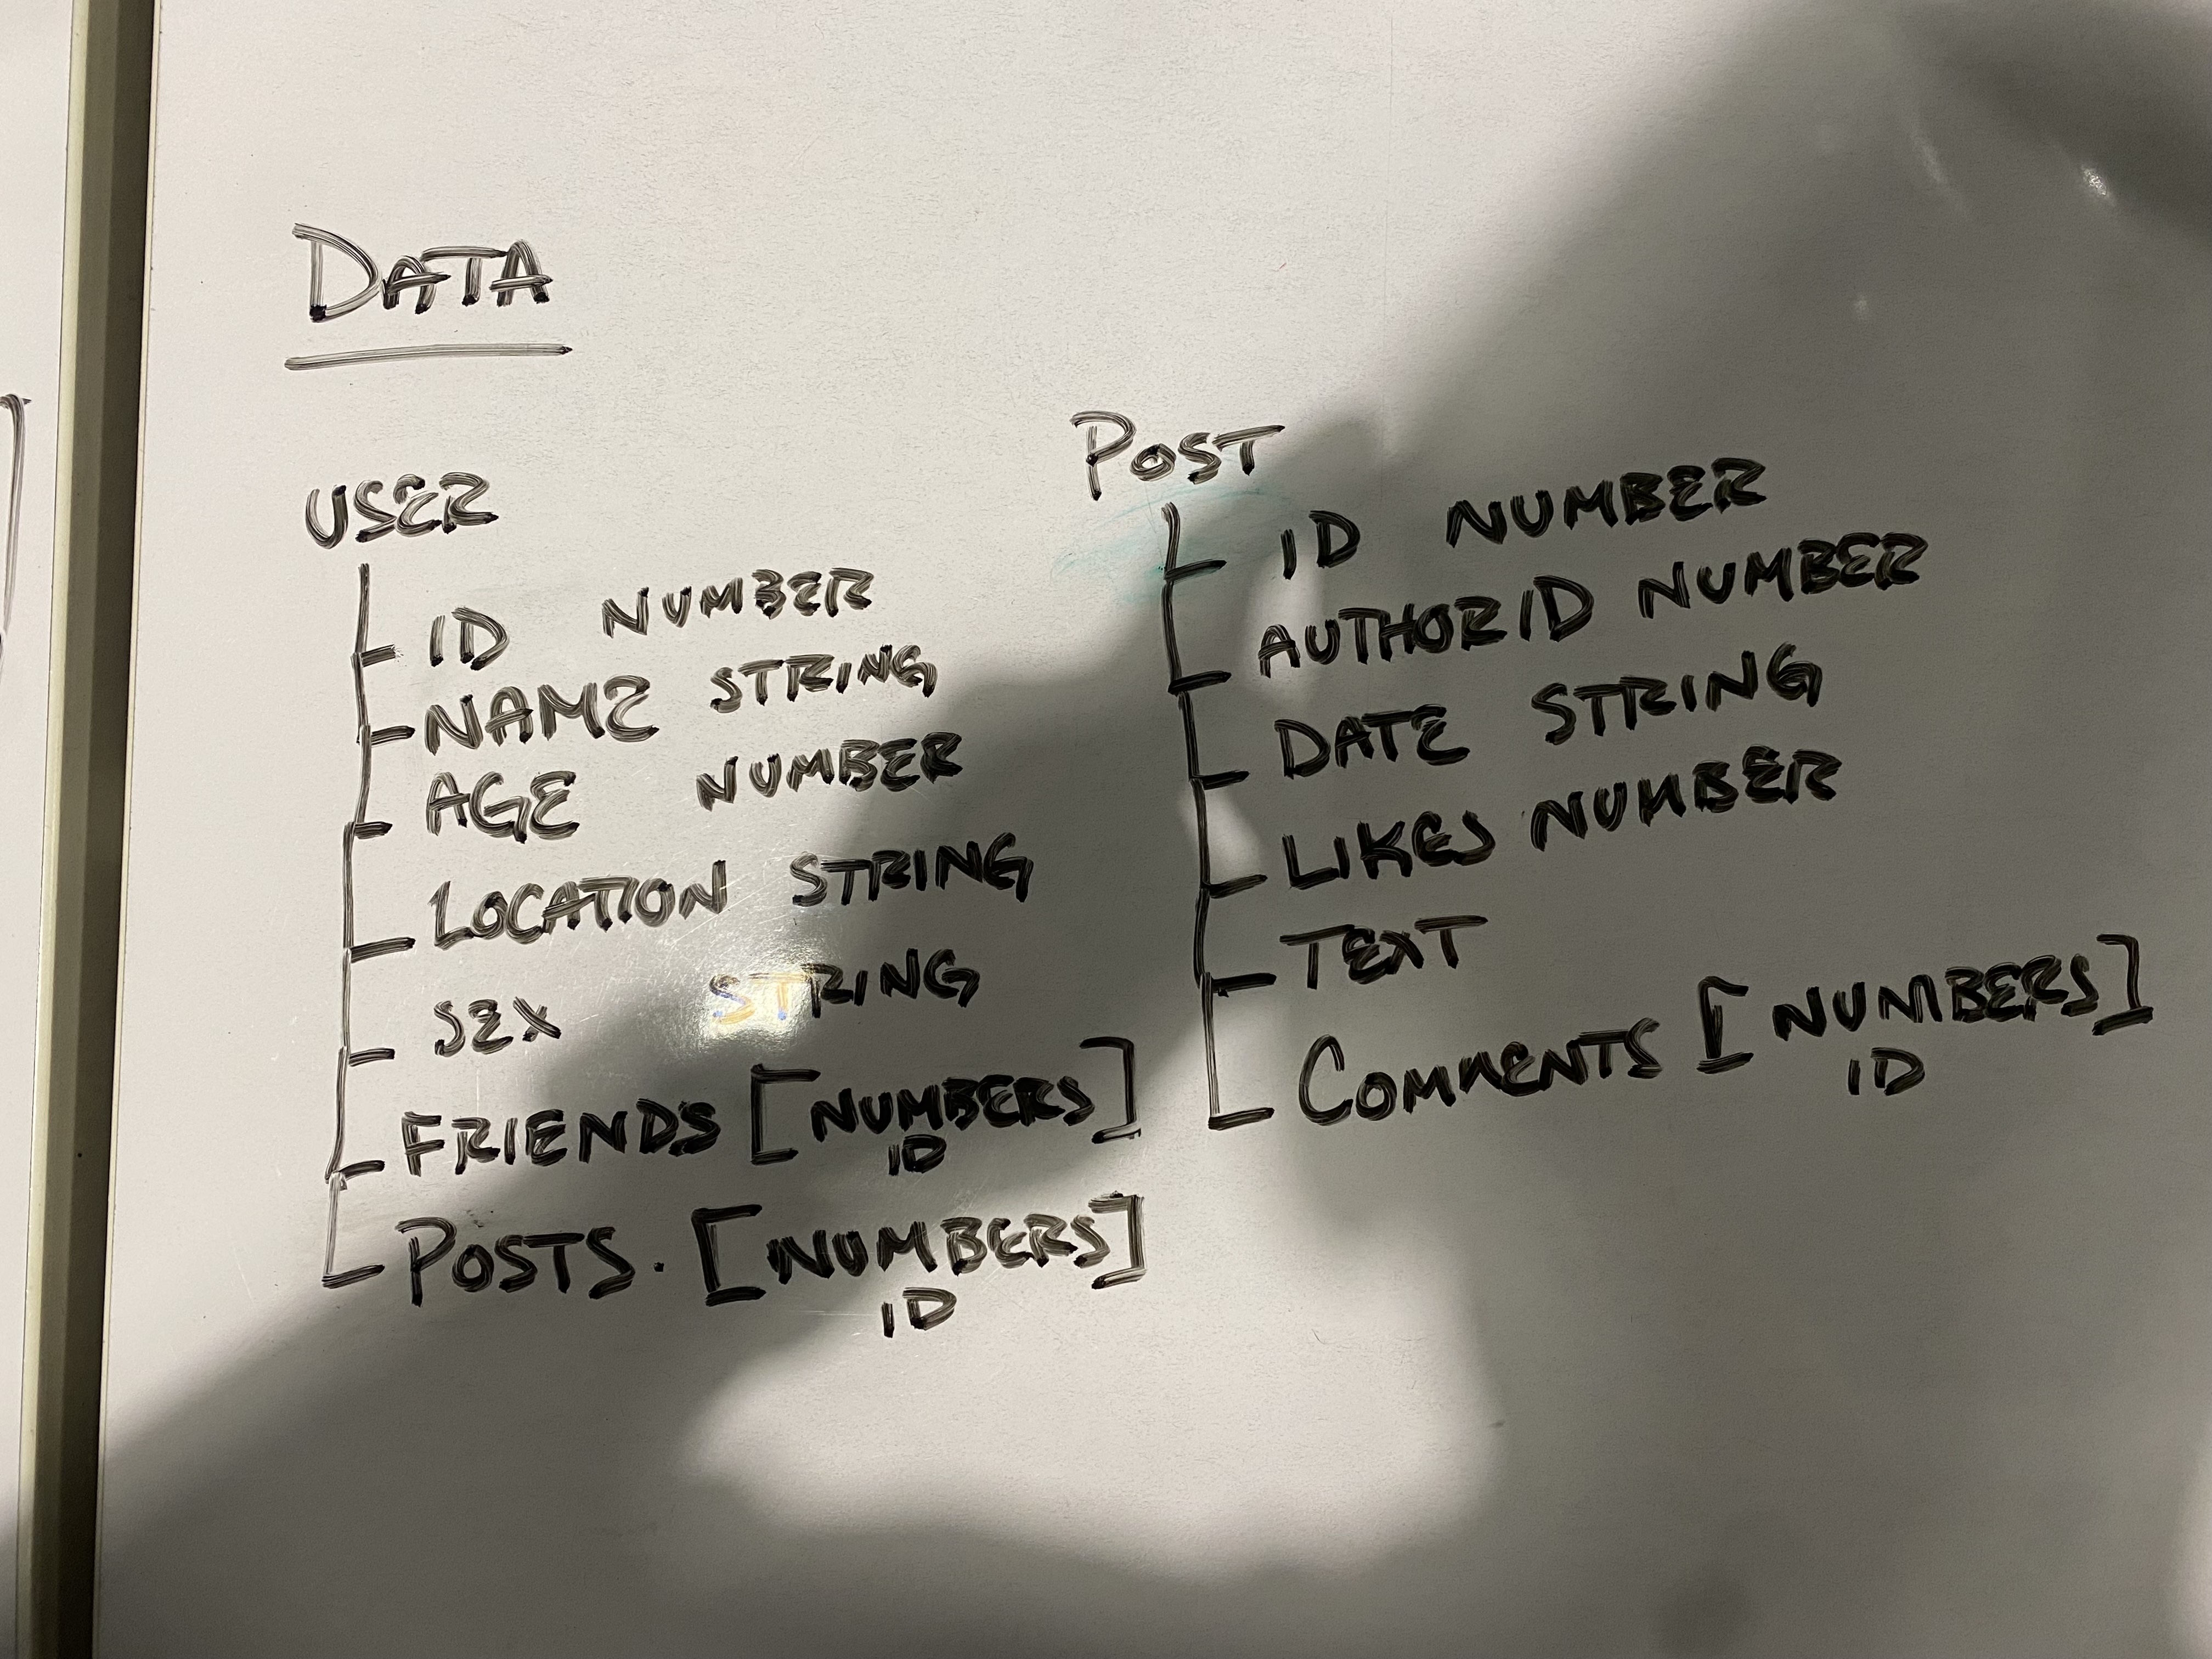 DATA
USER
ID NUMBER
NAME STRING
AGE NUMBER
LOCATION STRING
SEX STRING
FRIENDS [NUMBERS]
ID
POSTS. [NUMBERS]
ID
POST
ID NUMBER
AUTHORID NUMBER
DATE STRING
LIKES NUMBER
TEXT
COMMENTS [NUMBERS]
ID